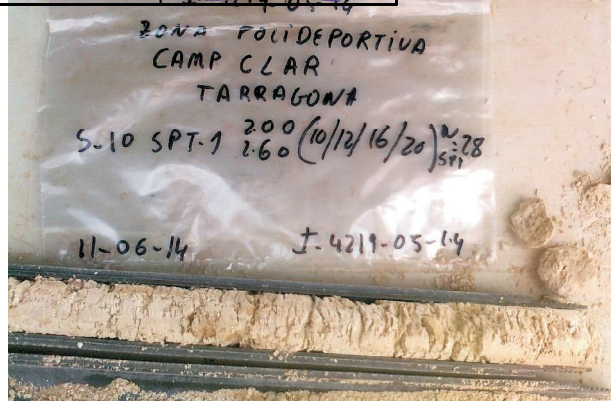 I-4219-05-14
ZONA POLIDEPORTIVA
CAMP CLAR
TARRAGONA
S-10 SPT-1 2.00 2.60 (10/12/16/20) N SPT = 28
11-06-14 I-4219-05-14